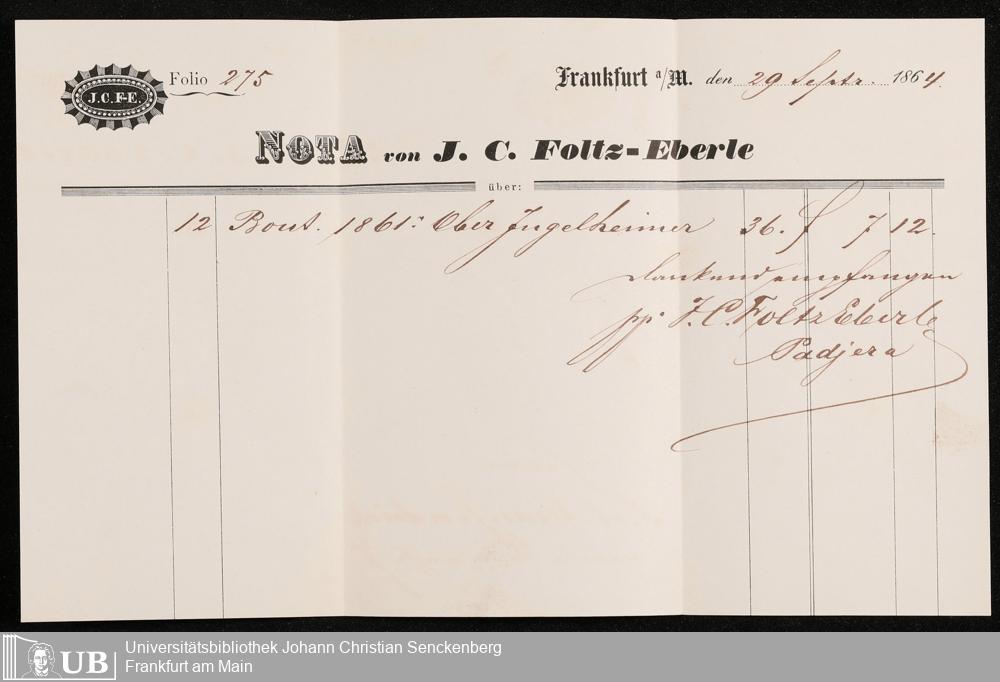 J. C. F-E.
Folio 275
Frankfurt a/M. den 29 Septr. 1864.
NOTA von J. C. Foltz-Eberle
über:
12 Bout. 1861r Ober Ingelheimer 36. f 7 12.
dankend empfangen
pp. J. C. Foltz Eberle
Padjera
UB
Universitätsbibliothek Johann Christian Senckenberg
Frankfurt am Main